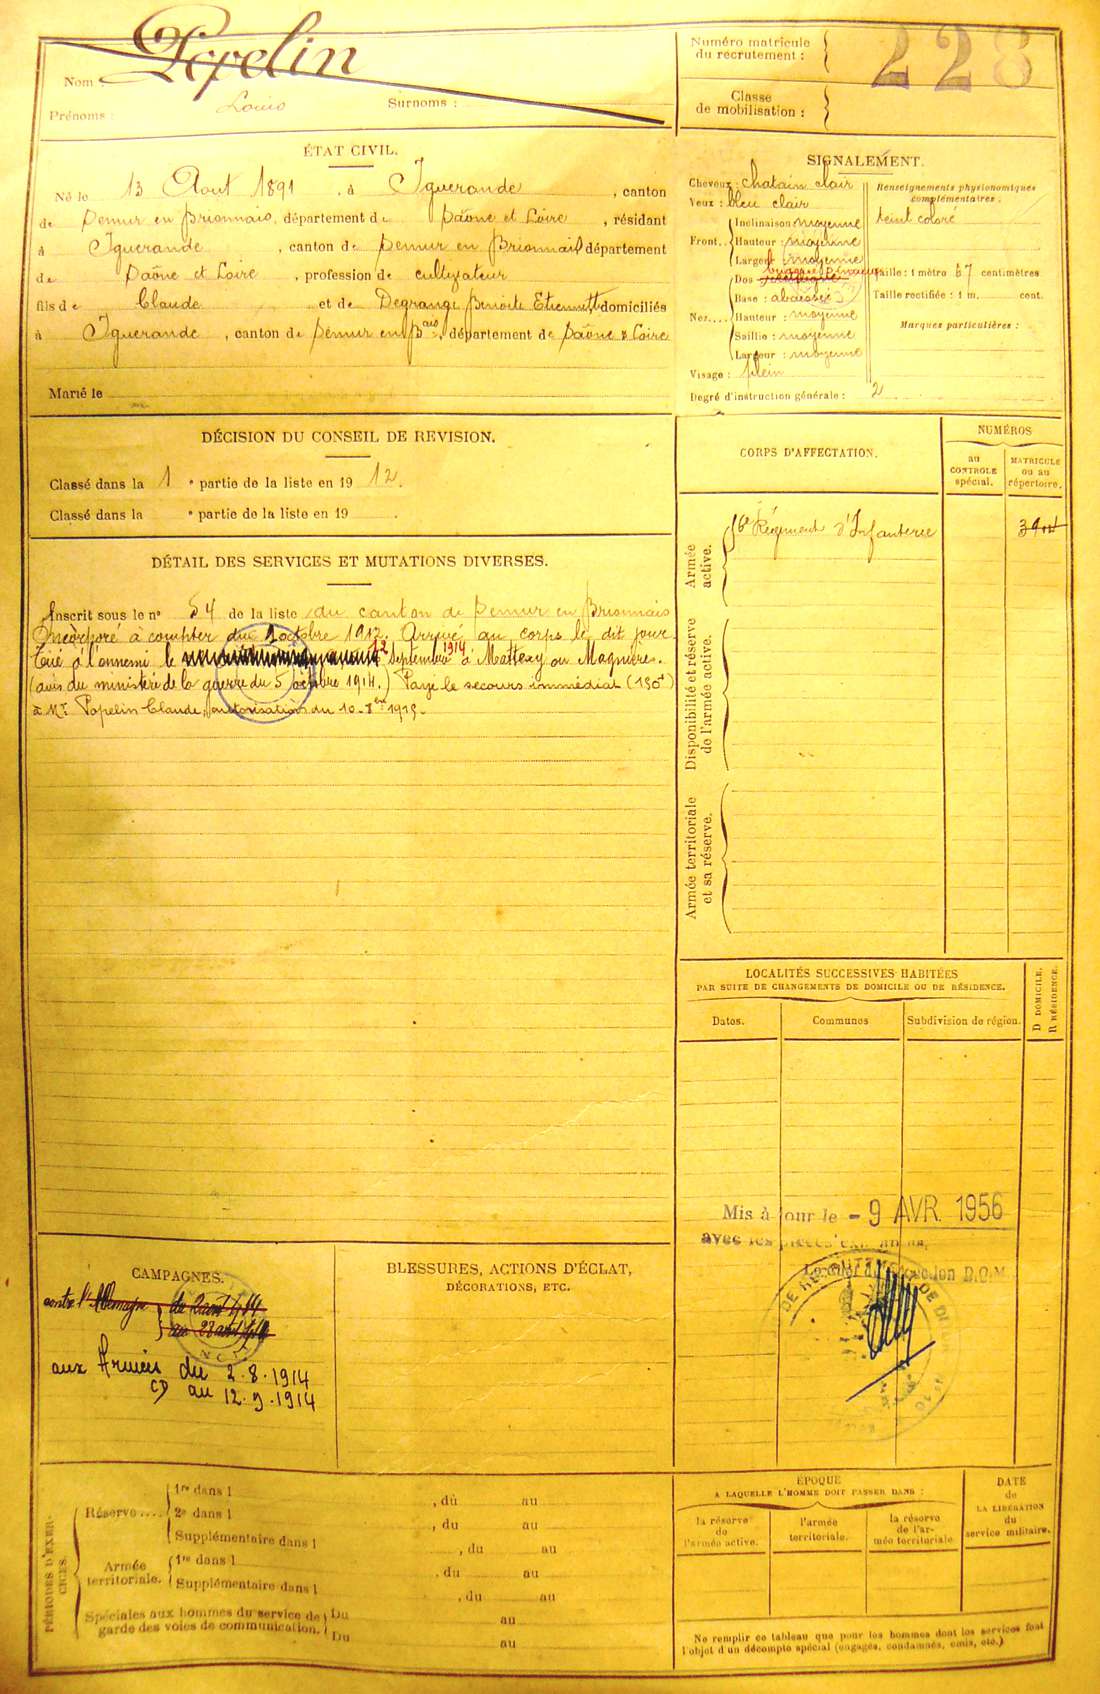 Nom : Popelin
Prénoms : Louis Surnoms :
Numéro matricule du recrutement : 228
Classe de mobilisation :
ÉTAT CIVIL.
Né le 13 Aout 1891, à Iguerande, canton
de Semur en Brionnais, département de Saône et Loire, résidant
à Iguerande, canton de Semur en Brionnais département
de Saône et Loire, profession de cultivateur
fils de Claude et de Degrange Benoite Etiennette domiciliés
à Iguerande, canton de Semur en Bais, département de Saône & Loire
Marié le
SIGNALEMENT.
Cheveux : chatain clair
Yeux : bleu clair
Front.. Inclinaison moyenne
Hauteur : moyenne
Largeur : moyenne
Nez.... Dos
Base : abaissée
Hauteur : moyenne
Saillie : moyenne
Largeur : moyenne
Visage : plein
Degré d'instruction générale : 2
Renseignements physionomiques complémentaires :
teint coloré
Taille : 1 mètre 67 centimètres
Taille rectifiée : 1 m. cent.
Marques particulières :
DÉCISION DU CONSEIL DE REVISION.
Classé dans la 1e partie de la liste en 1912.
Classé dans la e partie de la liste en 19 .
DÉTAIL DES SERVICES ET MUTATIONS DIVERSES.
Inscrit sous le n° 54 de la liste du canton de Semur en Brionnais
Incorporé à compter du octobre 1912. Arrivé au corps le dit jour.
Tué à l'ennemi le 12 septembre 1914 à Mattexy ou Magnières.
(avis du ministère de la guerre du 5 octobre 1914.) Payé le secours immédiat (150f)
à Mr Popelin Claude, autorisation du 10-
CORPS D'AFFECTATION.
NUMÉROS
au CONTROLE spécial.
MATRICULE ou au répertoire.
Armée active.
16e Régiment d'Infanterie
Disponibilité et réserve de l'armée active.
Armée territoriale et sa réserve.
LOCALITÉS SUCCESSIVES HABITÉES
PAR SUITE DE CHANGEMENTS DE DOMICILE OU DE RÉSIDENCE.
Dates.
Communes
Subdivision de région.
D DOMICILE.
R RÉSIDENCE.
Mis à jour le - 9 AVR. 1956
avec les pièces
CAMPAGNES.
contre l'Allemagne du 2 août 1914
au 28 août 1914
aux Armées du 2.8.1914
CD au 12.9.1914
BLESSURES, ACTIONS D'ÉCLAT,
DÉCORATIONS, ETC.
PÉRIODES D'EXERCICES.
Réserve.... 1re dans l , du au
2e dans l , du au
Supplémentaire dans l , du au
Armée territoriale. 1re dans l , du au
Supplémentaire dans l , du au
Spéciales aux hommes du service de garde des voies de communication. Du au
Du au
ÉPOQUE
A LAQUELLE L'HOMME DOIT PASSER DANS :
la réserve de l'armée active.
l'armée territoriale.
la réserve de l'armée territoriale
DATE de LA LIBÉRATION du service militaire.
Ne remplir ce tableau que pour les hommes dont les services font
l'objet d'un décompte spécial (engagés, condamnés, omis, etc.)